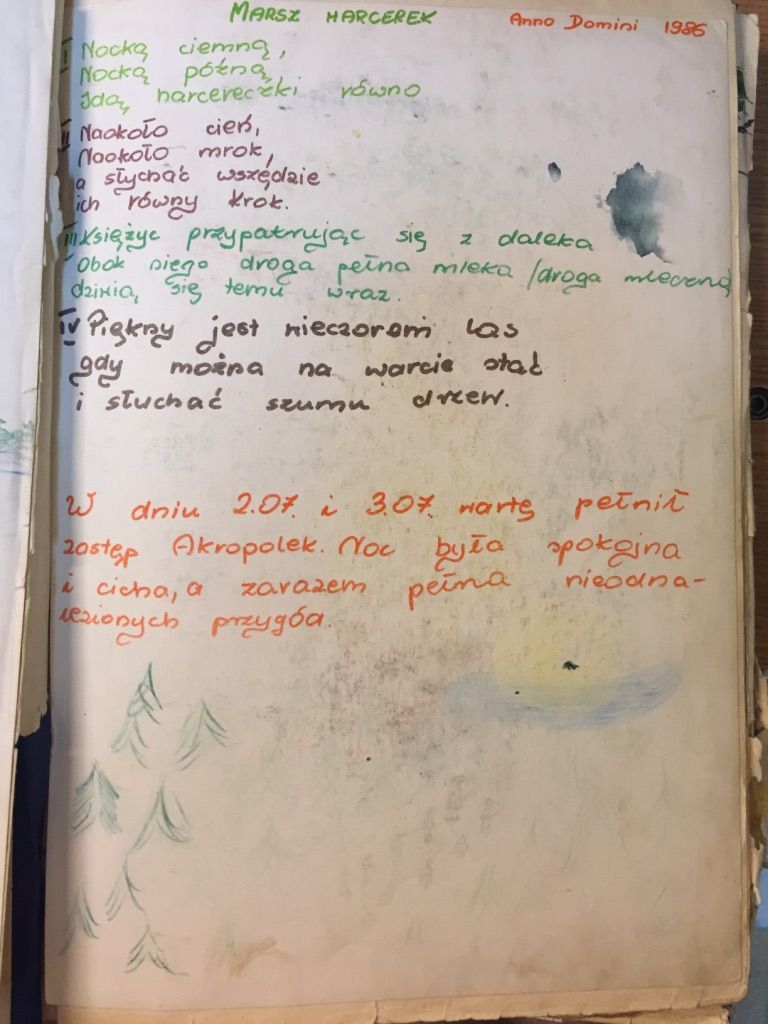 MARSZ HARCEREK Anno Domini 1986
I Nocką ciemną,
Nocką późną,
Idą harcereczki równo
II Naokoło cień,
Naokoło mrok,
a słychać wszędzie
ich równy krok.
III Księżyc przypatrując się z daleka
Obok niego droga pełna mleka /droga mleczna/
dziwią się temu wraz.
IV Piękny jest wieczorem las
gdy można na warcie stać
i słuchać szumu drzew.
W dniu 2.07. i 3.07. wartę pełnił
zastęp Akropolek. Noc była spokojna
i cicha, a zarazem pełna nieodna-
lezionych przygód.